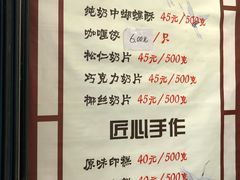 纯奶中蝴蝶酥 45元/500克
咖喱饺 6.00元/只
松仁奶片 45元/500克
巧克力奶片 45元/500克
椰丝奶片 45元/500克
匠心手作
原味印糕 40元/500克
40元/500克